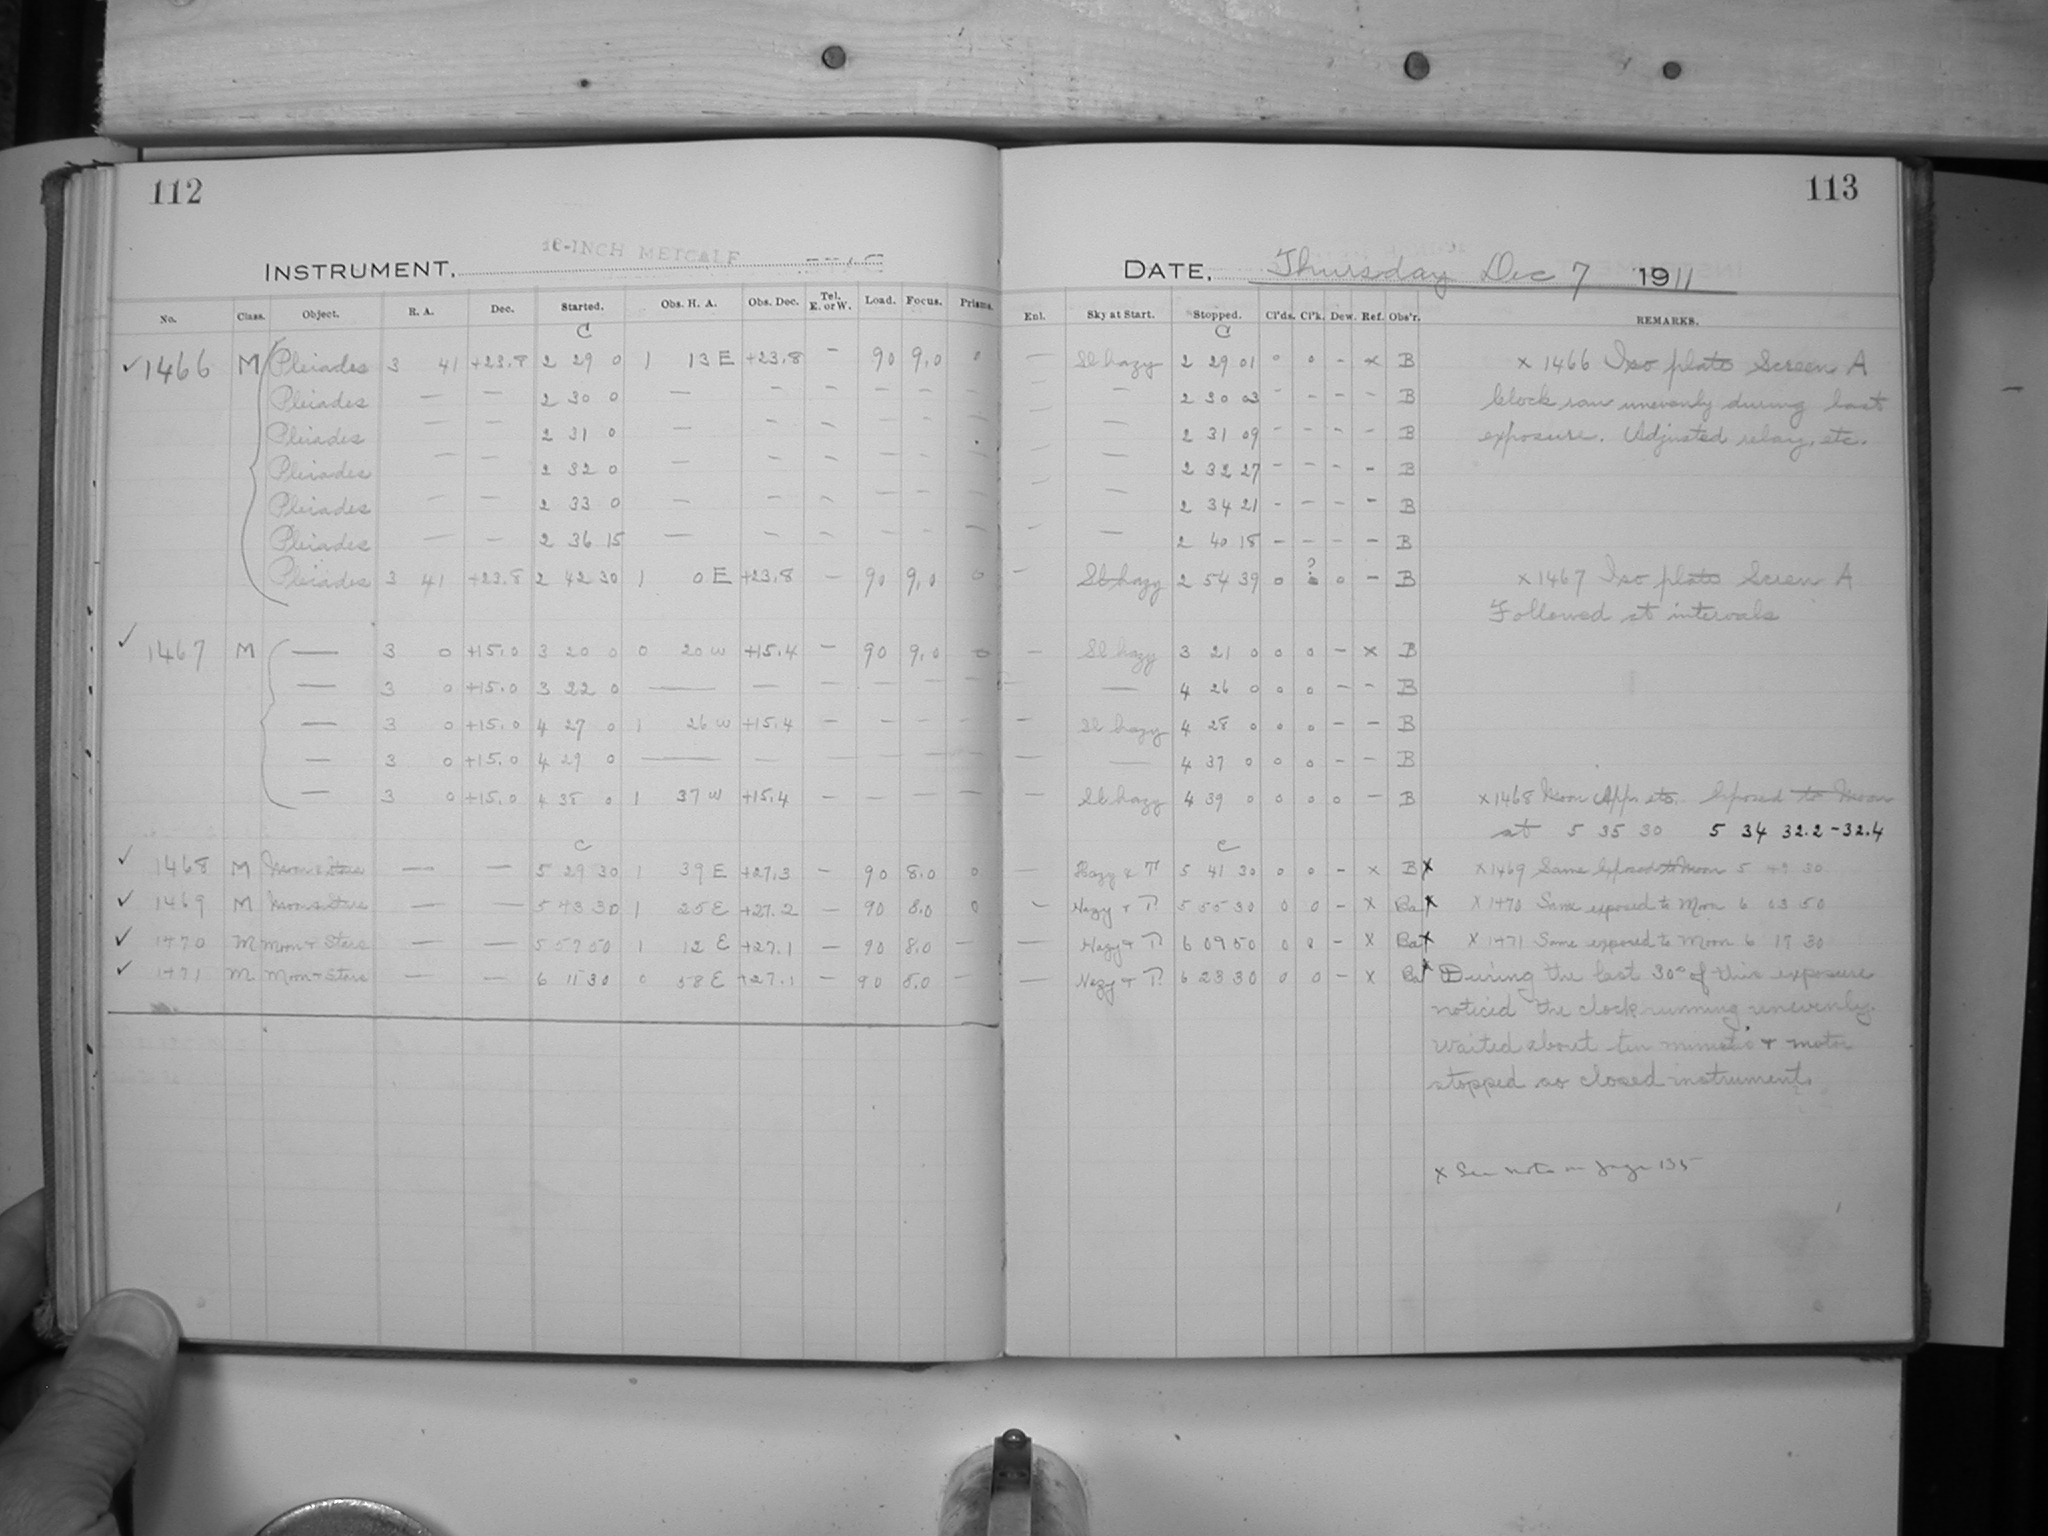 112
113
16-INCH METCALF
INSTRUMENT,
DATE, Thursday Dec 7 1911
No. Class. Object. R. A. Dec. Started. Obs. H. A. Obs. Dec. Tel. E. or W. Load. Focus. Prisms. Enl. Sky at Start. Stopped. Cl'ds. Cl'k. Dew. Ref. Obs'r. REMARKS.
C C
✓ 1466 M Pleiades 3 41 +23.8 2 29 0 1 13 E +23.8 — 90 9.0 0 — Sl hazy 2 29 01 0 0 - x B x 1466 Iso plate Screen A
Pleiades — — 2 30 0 — — — — — — — — 2 30 03 - - - - B Clock ran unevenly during last
Pleiades — — 2 31 0 — — — — — — — 2 31 09 - - - - B exposure. Adjusted relay, etc.
Pleiades — — 2 32 0 — — — — — — — — 2 32 27 - - - - B
Pleiades — — 2 33 0 — — — — — — — — 2 34 21 - - - - B
Pleiades — — 2 36 15 — — — — — — — — 2 40 18 - - - - B
Pleiades 3 41 +23.8 2 42 30 1 0 E +23.8 — 90 9.0 0 — Sl hazy 2 54 39 0 ? 0 - B x 1467 Iso plate Screen A
Followed at intervals
✓ 1467 M — 3 0 +15.0 3 20 0 0 20 W +15.4 — 90 9.0 0 — Sl hazy 3 21 0 0 0 - x B
— 3 0 +15.0 3 22 0 — — — — — — — — 4 26 0 0 0 - - B
— 3 0 +15.0 4 27 0 1 26 W +15.4 — — — — — Sl hazy 4 28 0 0 0 - - B
— 3 0 +15.0 4 29 0 — — — — — — — — 4 37 0 0 0 - - B
— 3 0 +15.0 4 38 0 1 37 W +15.4 — — — — — Sl hazy 4 39 0 0 0 0 - B x 1468 Moon App. etc. Exposed to Moon
at 5 35 30 5 34 32.2-32.4
C C
✓ 1468 M Moon & Stars — — 5 29 30 1 39 E +27.3 — 90 8.0 0 — Hazy & T 5 41 30 0 0 - x B x x 1469 Same Exposed to Moon 5 49 30
✓ 1469 M Moon & Stars — — 5 43 30 1 25 E +27.2 — 90 8.0 0 — Hazy + T. 5 55 30 0 0 - x Ba x x 1470 Same exposed to Moon 6 03 50
✓ 1470 M Moon + Stars — — 5 57 50 1 12 E +27.1 — 90 8.0 — — Hazy + T. 6 09 50 0 0 - x Ba x x 1471 Same exposed to Moon 6 17 30
✓ 1471 M Moon + Stars — — 6 11 30 0 58 E +27.1 — 90 8.0 — — Hazy + T. 6 23 30 0 0 - x Ba x During the last 30s of this exposure
noticed the clock running unevenly.
Waited about ten minutes + motor
stopped so closed instrument.
x See note on page 135